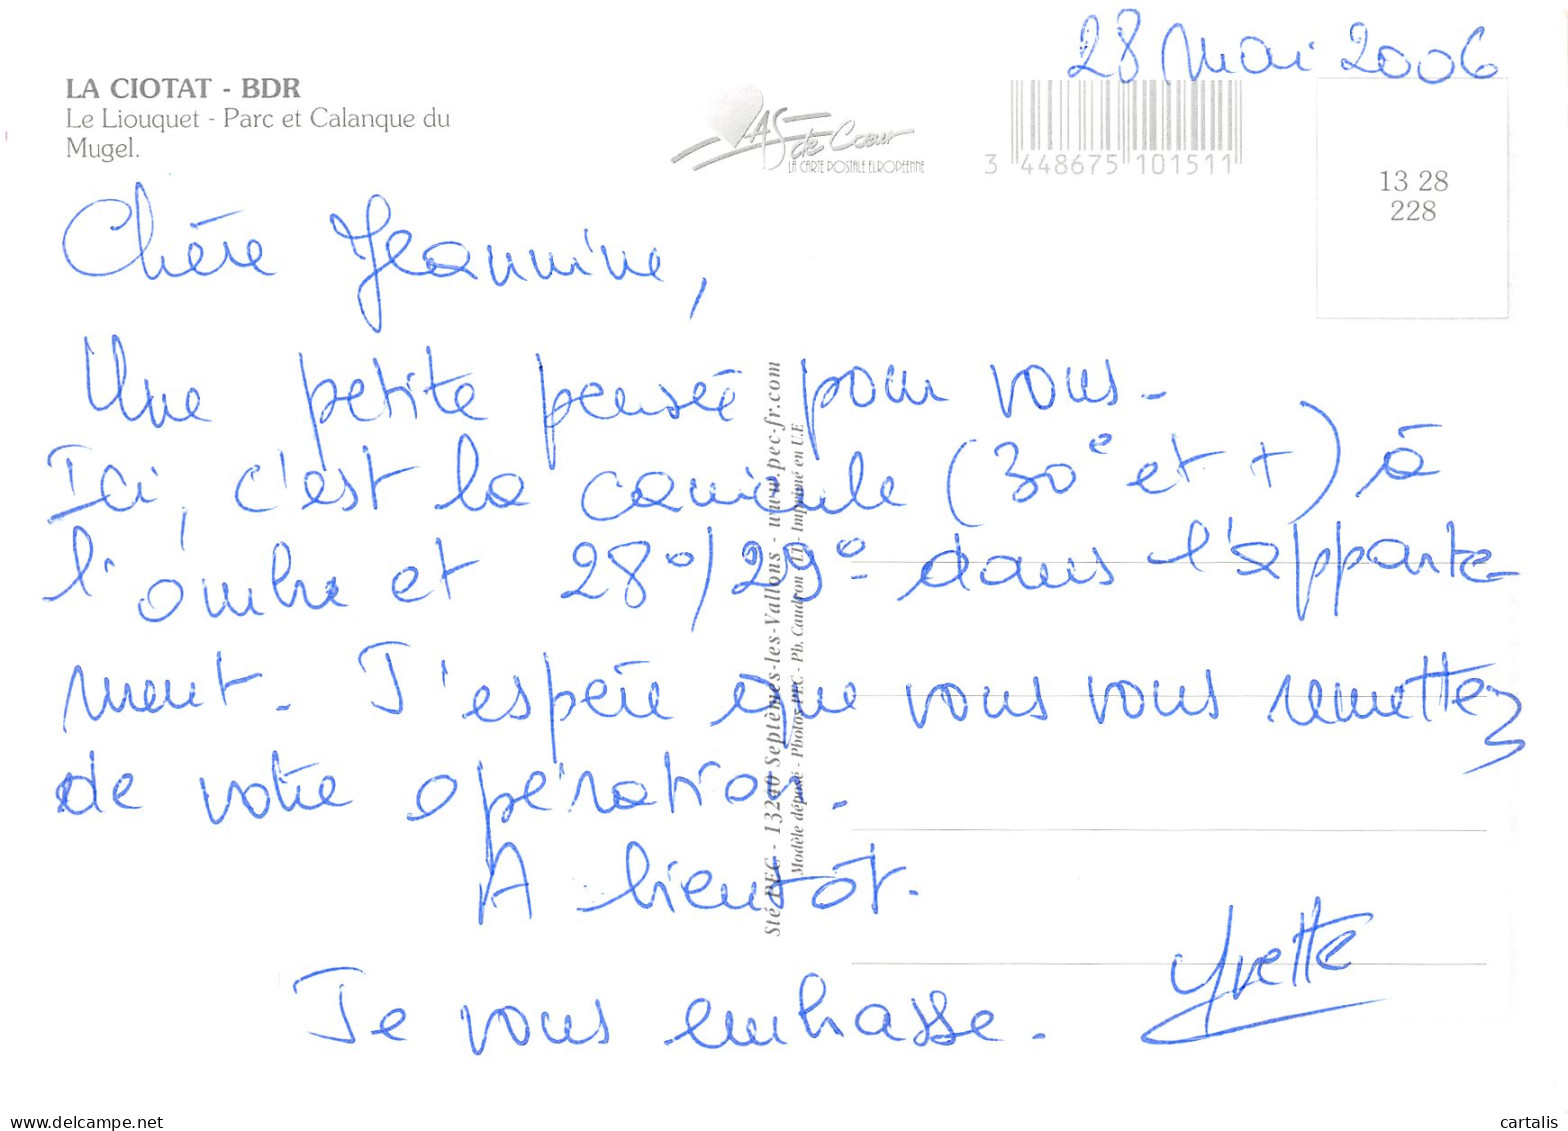 28 mai 2006
LA CIOTAT - BDR
Le Liouquet - Parc et Calanque du
Mugel.
AS de Cœur
LA CARTE POSTALE EUROPEENNE
3 448675 101511
13 28
228
Chère Jeannine,
Une petite pensée pour vous.
Ici, c'est la canicule (30° et +) à
l'ombre et 28°/29° dans l'apparte-
ment. J'espère que vous vous remettez
de votre opération.
A bientôt.
Je vous embrasse.
Yvette
Sté PEC - 13240 Septèmes-les-Vallons - www.pec-fr.com
Modèle déposé - Photos PEC - Ph. Caudron - Imprimé en U.E
delcampe.net
cartalis